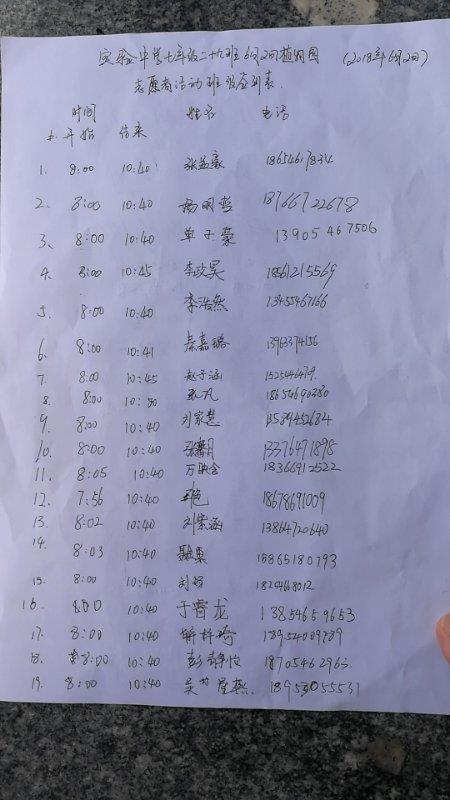 实验中学七年级二十九班6月2日植物园 (2018年6月2日)
志愿者活动班级签到表.
时间 姓名 电话
开始 结束
1. 8:00 10:40 张益豪 18654617834
2. 8:00 10:40 杨明哲 18766722678
3. 8:00 10:40 单子豪 13905467506
4. 8:00 10:45 李政昊 18561215569
5. 8:00 10:40 李浩然 13455467166
6. 8:00 10:41 秦嘉璐 1396374156
7. 8:00 10:45 赵子涵
8. 8:00 10:50 18654690380
9. 8:00 10:40 刘家慧 13589452684
10. 8:00 10:40 13376471898
11. 8:05 10:40 万映含 18366912522
12. 7:56 10:40 18678691009
13. 8:02 10:40 刘紫涵 13864720640
14. 8:03 10:40 15865180793
15. 8:00 10:40
16. 8:00 10:40 于睿龙 13854659653
17. 8:00 10:40
18. 8:00 10:40 彭静怡 18705462963
19. 8:00 10:40 吴 18953055531